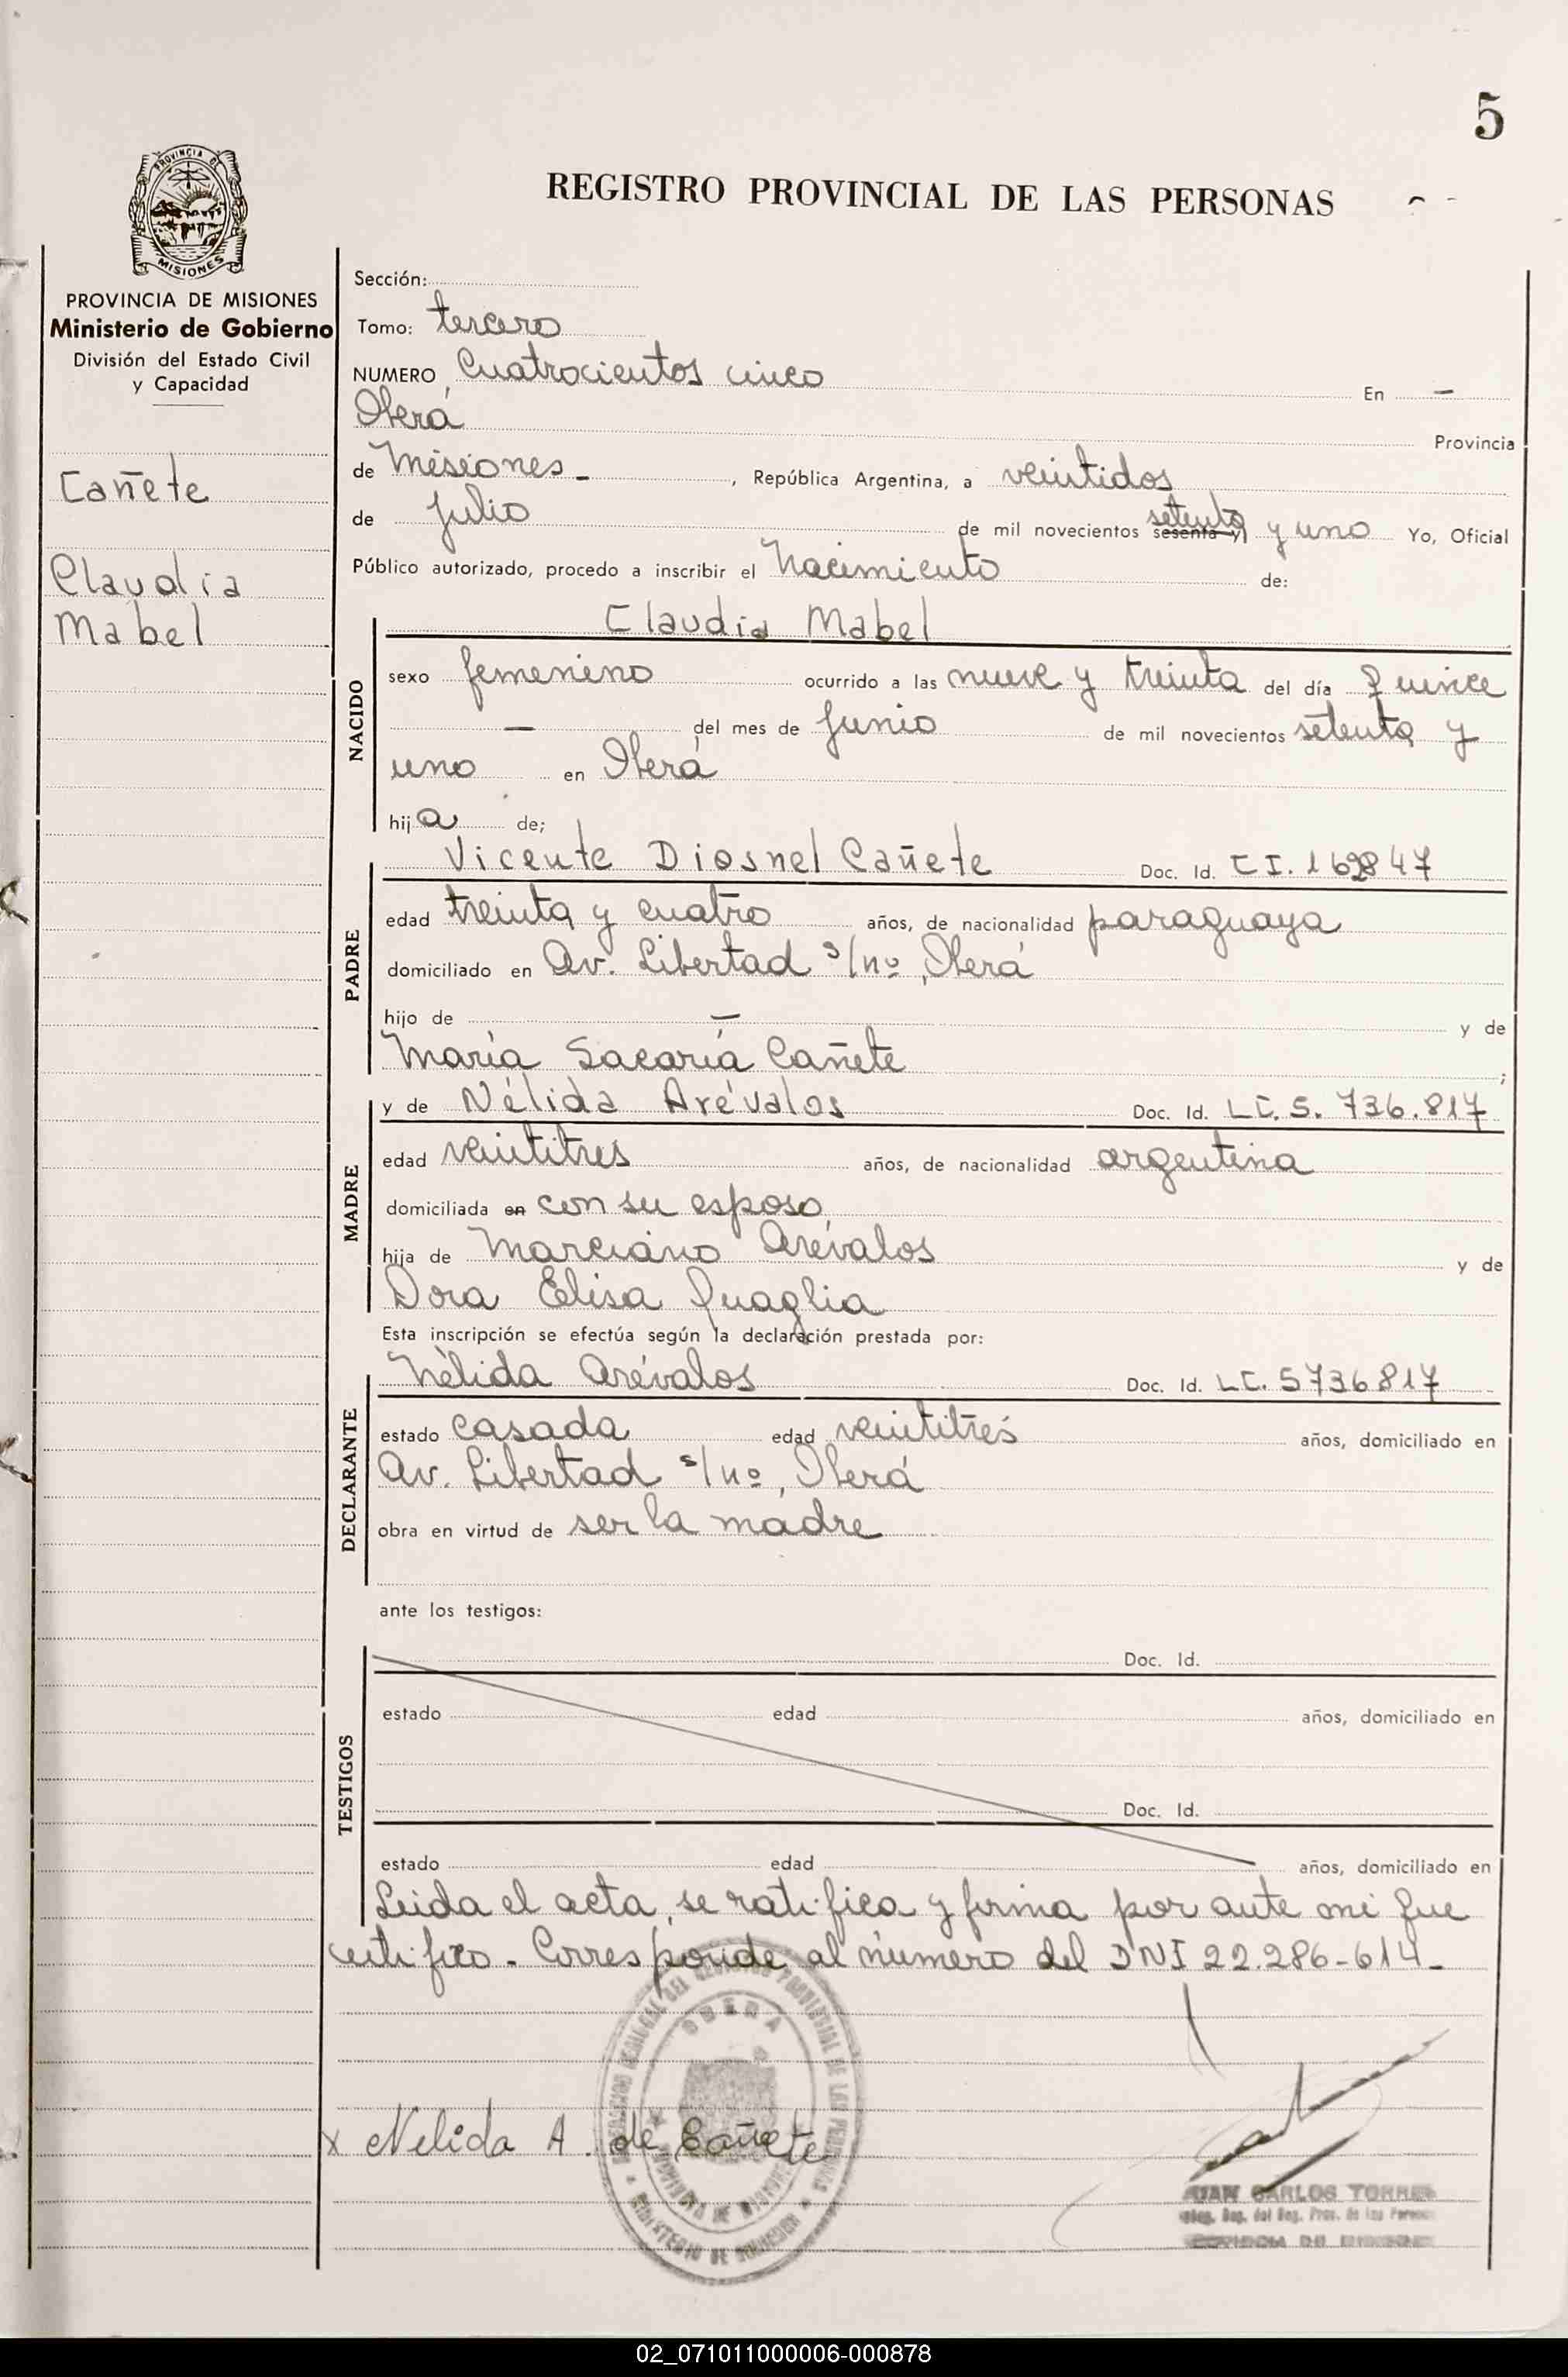 5
REGISTRO PROVINCIAL DE LAS PERSONAS
PROVINCIA DE
MISIONES
PROVINCIA DE MISIONES
Ministerio de Gobierno
División del Estado Civil
y Capacidad
Cañete
Claudia
Mabel
Sección:
Tomo: tercero
NUMERO Cuatrocientos cinco En —
Oberá Provincia
de Misiones -, República Argentina, a veintidos
de Julio de mil novecientos setenta sesenta y y uno Yo, Oficial
Público autorizado, procedo a inscribir el Nacimiento de:
NACIDO
Claudia Mabel
sexo femenino ocurrido a las nueve y treinta del día quince
— del mes de Junio de mil novecientos setenta y
uno en Oberá
hija de;
PADRE
Vicente Diosnel Cañete Doc. Id. C I. 162847
edad treinta y cuatro años, de nacionalidad paraguaya
domiciliado en Av. Libertad s/nº, Oberá
hijo de — y de
María Sacaría Cañete ;
MADRE
y de Nélida Arévalos Doc. Id. LC. 5. 736.817
edad veintitres años, de nacionalidad argentina
domiciliada en con su esposo
hija de Marciano Arévalos y de
Dora Elisa Quaglia
Esta inscripción se efectúa según la declaración prestada por:
DECLARANTE
Nélida Arévalos Doc. Id. LC. 5736817
estado casada edad veintitrés años, domiciliado en
Av. Libertad s/nº, Oberá
obra en virtud de ser la madre
ante los testigos:
TESTIGOS
Doc. Id.
estado edad años, domiciliado en
Doc. Id.
estado edad años, domiciliado en
Leida el acta, se ratifica y firma por ante mi que
certifico - Corresponde al número del DNI 22.286-614-
OBERA
MINISTERIO DE GOBIERNO
x Nelida A. de Cañete
JUAN CARLOS TORRES
PROVINCIA DE MISIONES
02_071011000006-000878